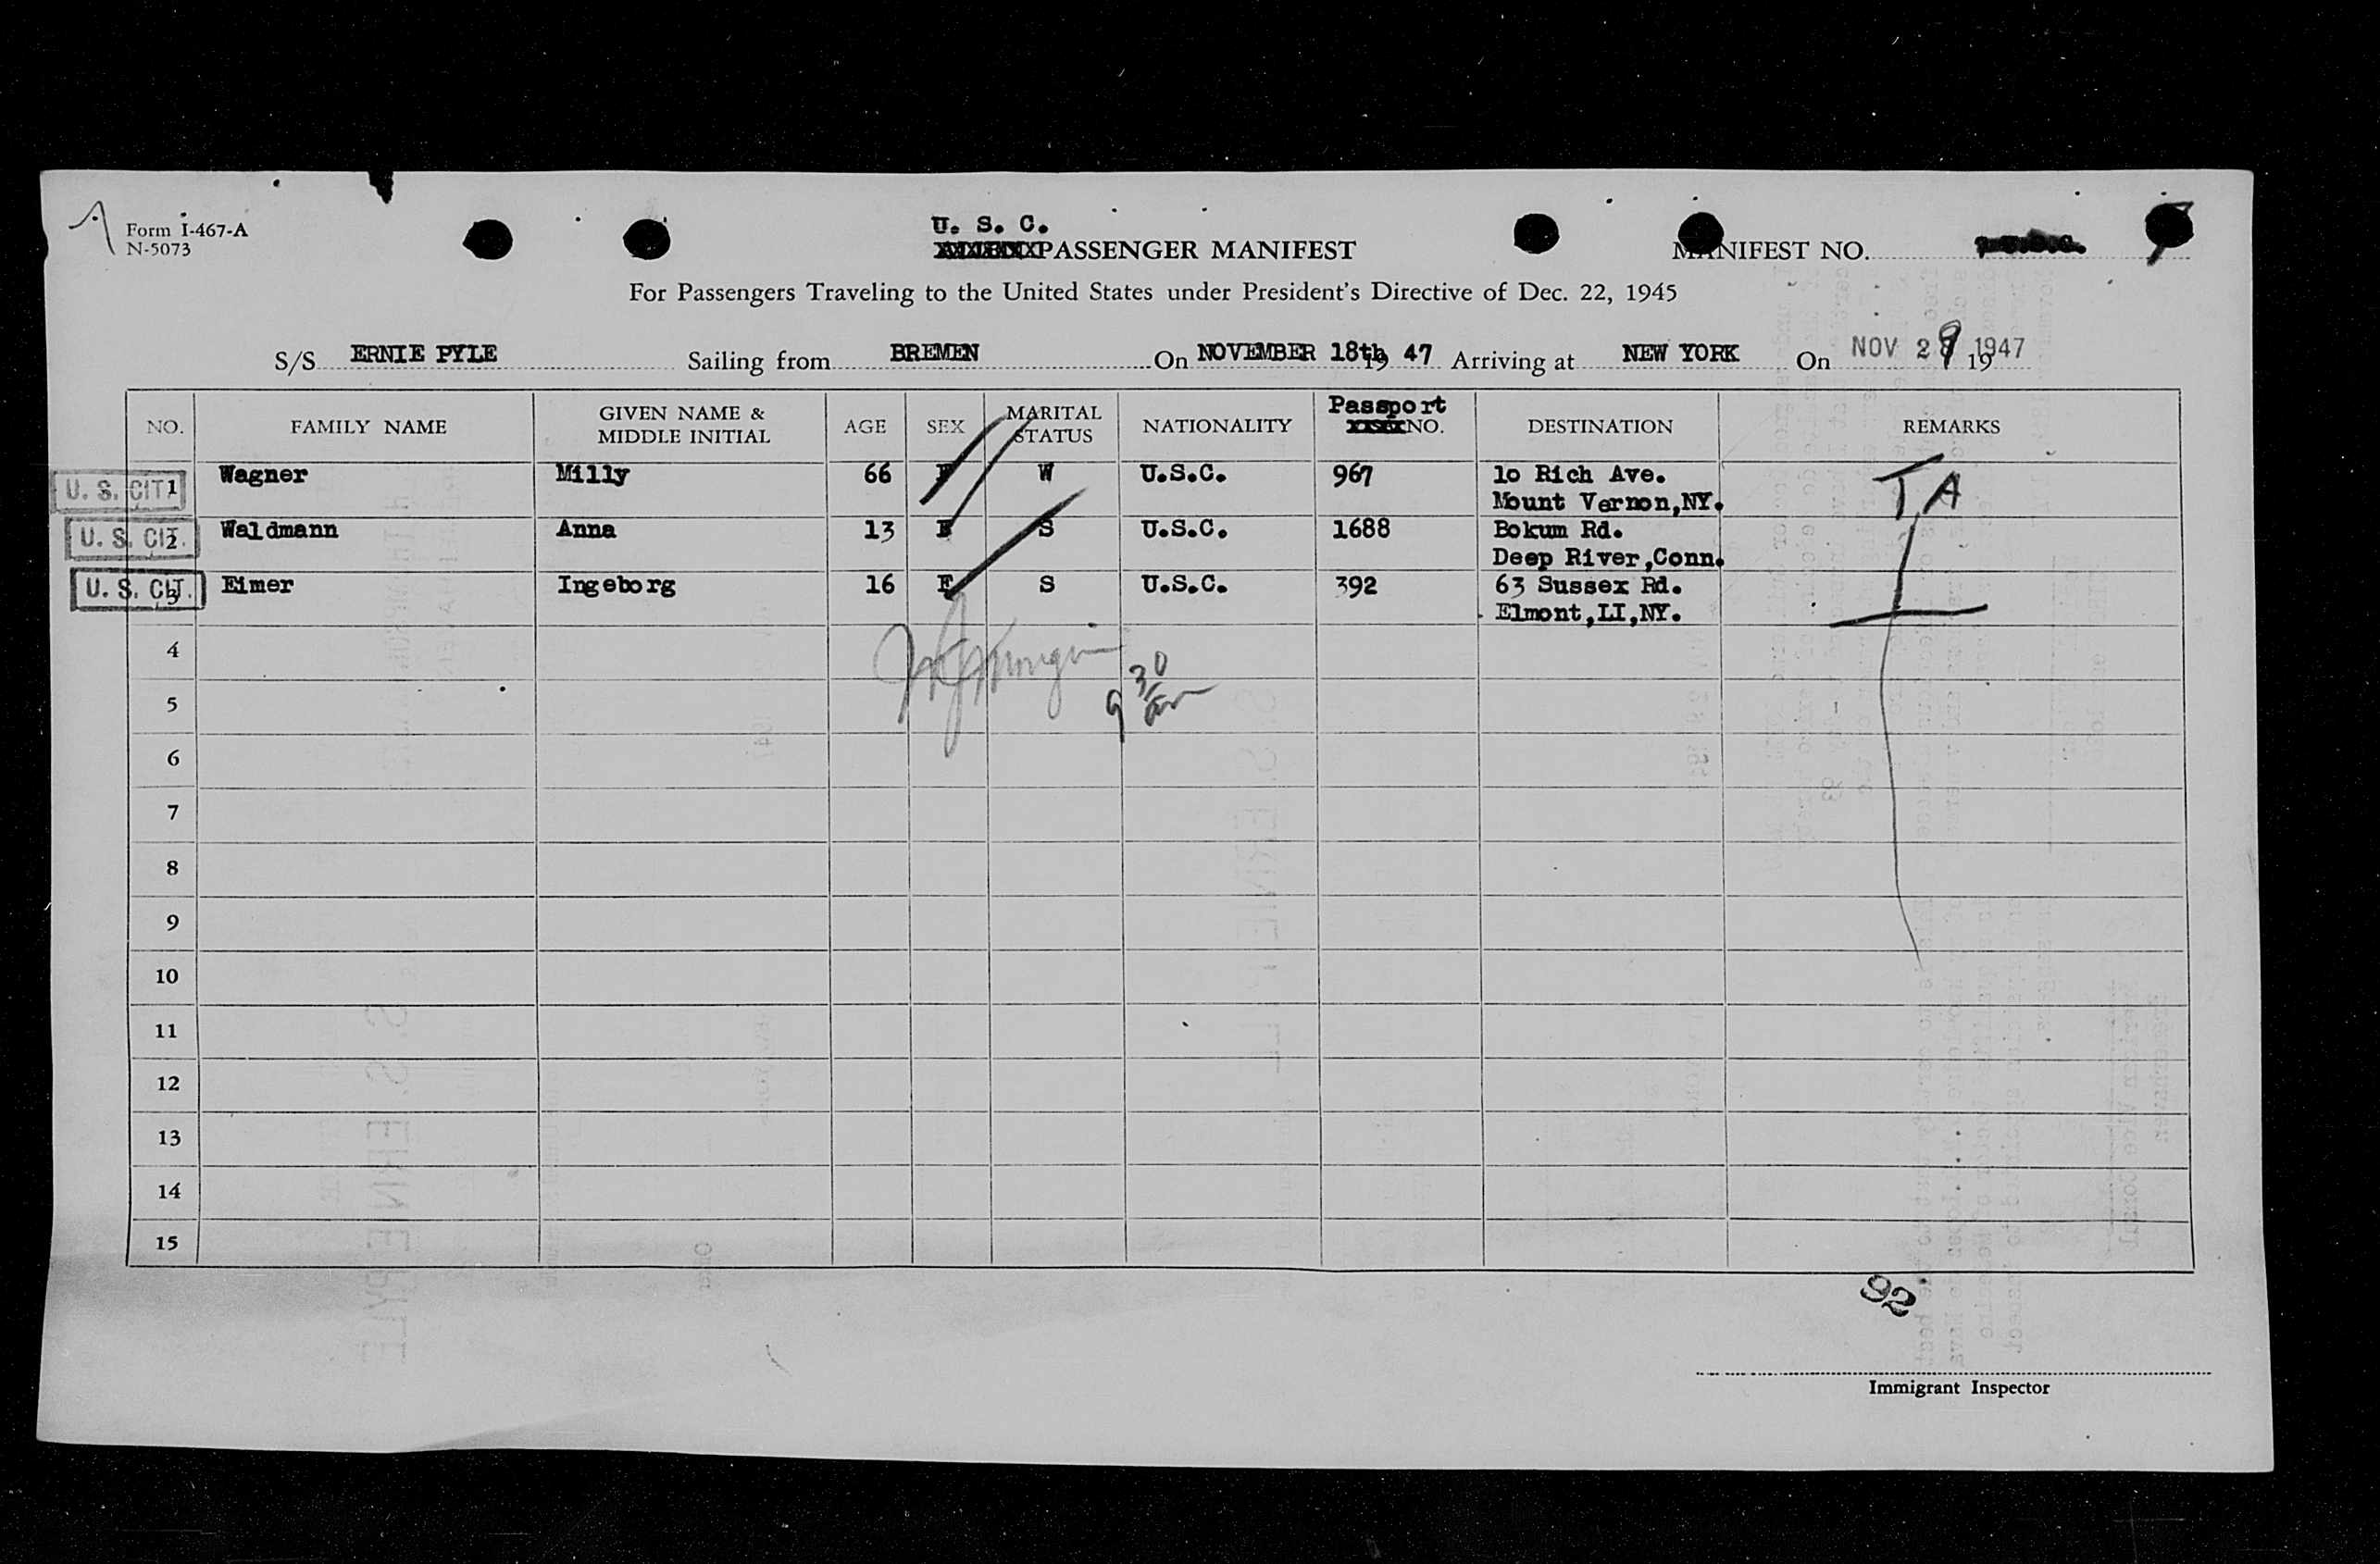 Form I-467-A
N-5073
U. S. C.
PASSENGER MANIFEST
MANIFEST NO.
For Passengers Traveling to the United States under President's Directive of Dec. 22, 1945
S/S ERNIE PYLE Sailing from BREMEN On NOVEMBER 18th 19 47 Arriving at NEW YORK On NOV 29 1947 19
NO. FAMILY NAME GIVEN NAME & MIDDLE INITIAL AGE SEX MARITAL STATUS NATIONALITY Passport NO. DESTINATION REMARKS
U. S. CIT. 1 Wagner Milly 66 F W U.S.C. 967 10 Rich Ave. T A
Mount Vernon,NY.
U. S. CIT. 2 Waldmann Anna 13 F S U.S.C. 1688 Bokum Rd.
Deep River,Conn.
U. S. CIT. 3 Eimer Ingeborg 16 F S U.S.C. 392 63 Sussex Rd.
Elmont,LI,NY.
4
9 30 am
5
6
7
8
9
10
11
12
13
14
15
92
Immigrant Inspector